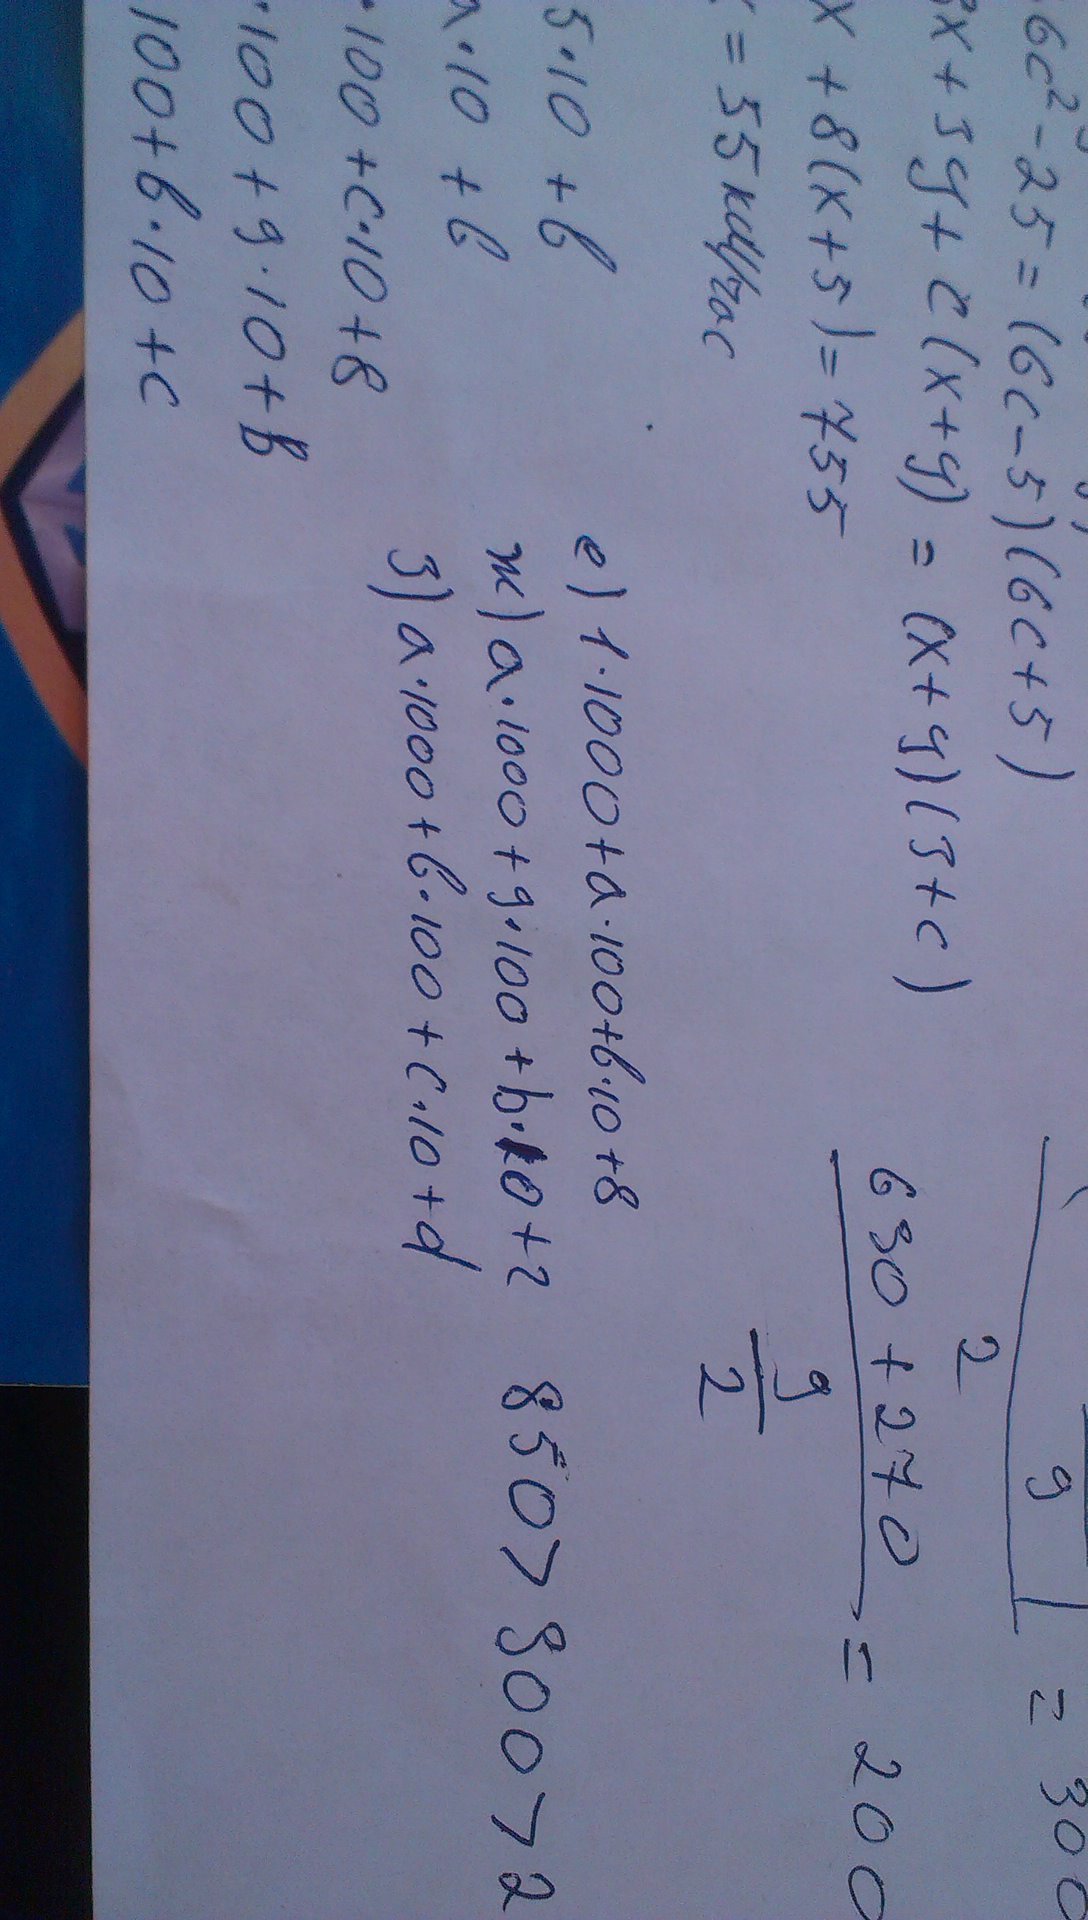 6c² - 25 = (6c - 5)(6c + 5)
x + 5y + c(x + y) = (x + y)(5 + c)
x + 8(x + 5) = 755
= 55 км/час
5·10 + b
a·10 + b
·100 + c·10 + 8
·100 + 9·10 + b
100 + b·10 + c
е) 1·1000 + a·100 + b·10 + 8
ж) a·1000 + 9·100 + b·10 + 2
з) a·1000 + b·100 + c·10 + d
9
= 300
2
630 + 270
= 200
9
2
8507 90072